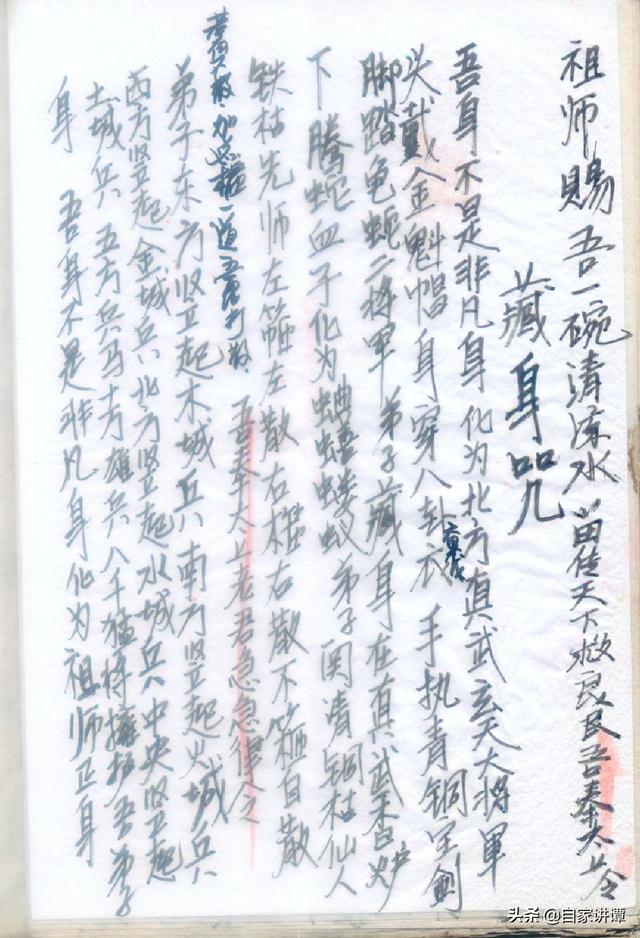 祖师賜吾一碗清凉水苗传天下救良民吾奉太上令
藏身咒
吾身不是非凡身化为北方真武玄天大将軍
头戴金魁帽身穿八卦衣手执青铜宝剑
脚踏龟蛇二将軍弟子藏身在真武香炉
下腾蛇血子化为蝼蚁弟子闵清铜枯仙人
铁枯先师左箍左散右箍右散不箍自散
吾奉太上老君急急律令
弟子东方竖起木城兵南方竖起火城兵
西方竖起金城兵北方竖起水城兵中央竖起
土城兵五方兵马十方雄兵八千猛将擁护吾弟子
身吾身不是非凡身化为祖师正身
头条@自家讲谭